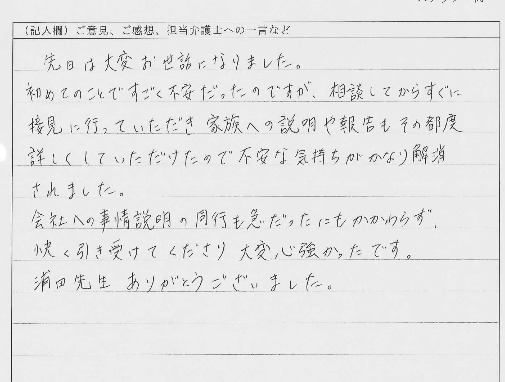 (記入欄)ご意見、ご感想、担当弁護士への一言など
先日は大変お世話になりました。
初めてのことですごく不安だったのですが、相談してからすぐに
接見に行っていただき家族への説明や報告もその都度
詳しくしていただけたので不安な気持ちがかなり解消
されました。
会社への事情説明の同行も急だったにもかかわらず、
快く引き受けてくださり大変心強かったです。
浦田先生ありがとうございました。